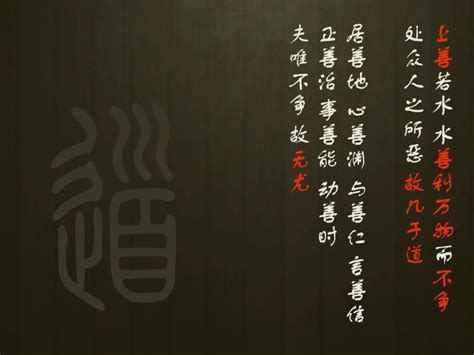 上善若水水善利万物而不争
处众人之所恶故几于道
居善地 心善渊 与善仁 言善信
正善治 事善能 动善时
夫唯不争故无尤
道